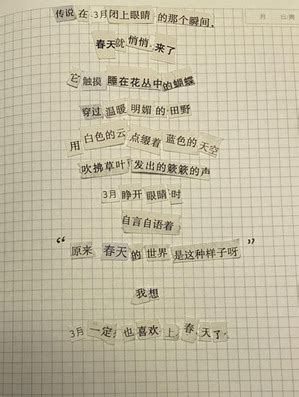 传说在3月闭上眼睛的那个瞬间,
春天就悄悄来了
它触摸睡在花丛中的蝴蝶
穿过温暖明媚的田野
用白色的云点缀着蓝色的天空
吹拂草叶发出的簌簌的声
3月睁开眼睛时
自言自语着
“原来春天的世界是这种样子呀”
我想
3月一定也喜欢上春天了